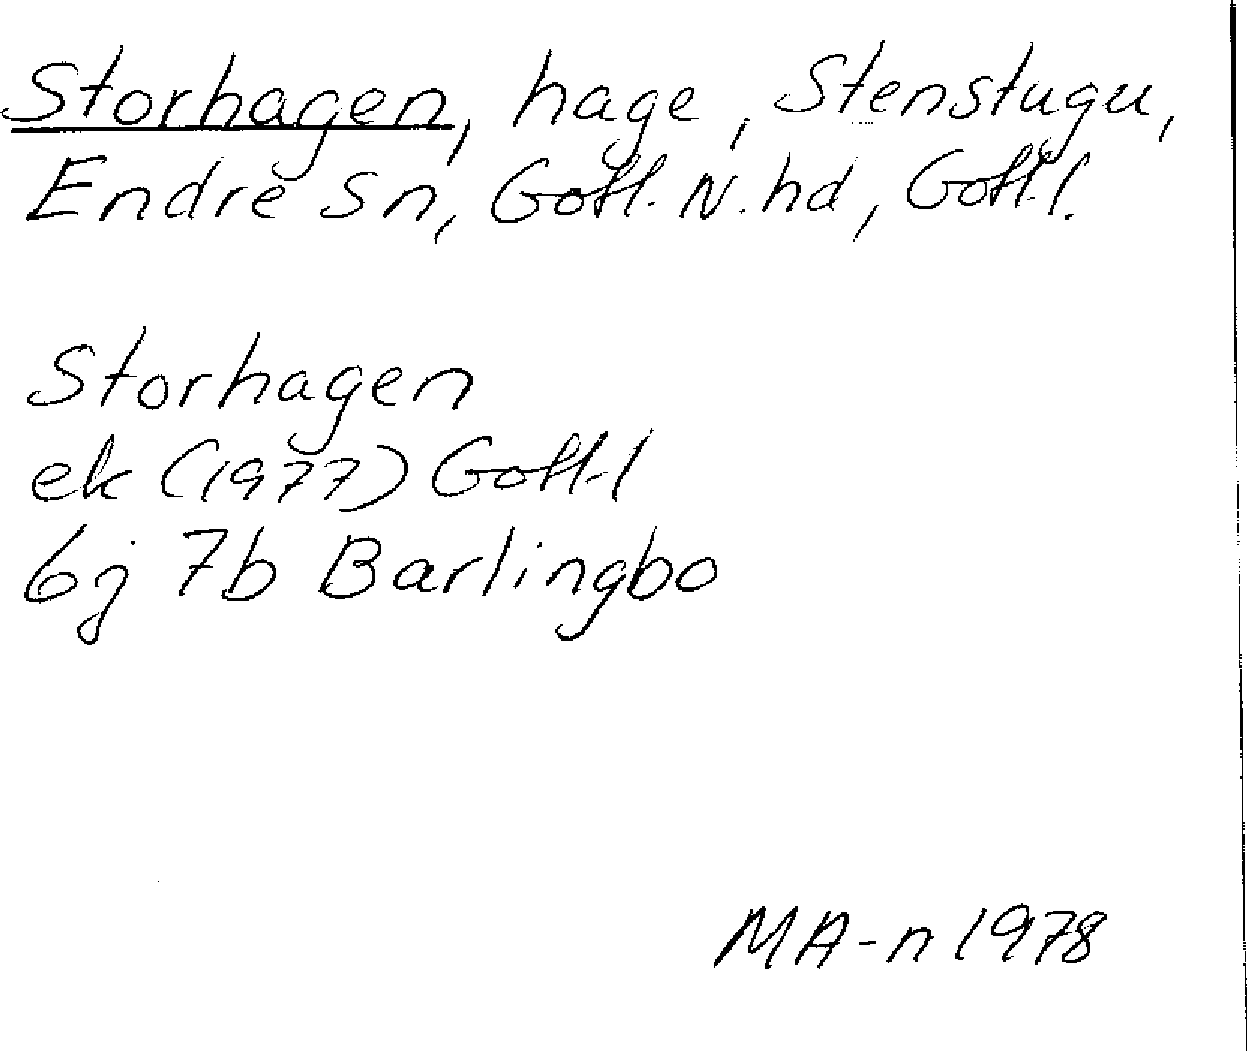 Storhagen, hage, Stenstugu,
Endre sn, Gotl. N. hd, Gotl. l.
Storhagen
ek (1977) Gotl. l
6j 7b Barlingbo
MA-n 1978